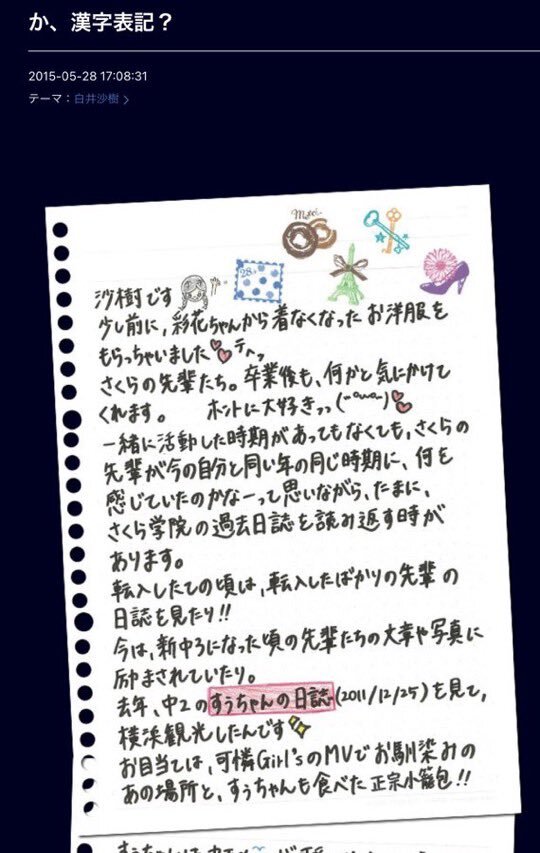 か、漢字表記？
2015-05-28 17:08:31
テーマ：白井沙樹 >
Merci
28
沙樹です
少し前に、彩花ちゃんから着なくなったお洋服を
もらっちゃいました💕テヘっ
さくらの先輩たち。卒業後も、何かと気にかけて
くれます。 ホントに大好きっっ(⌒▽⌒)💕
一緒に活動した時期があってもなくても、さくらの
先輩が今の自分と同い年の同じ時期に、何を
感じていたのかなーって思いながら、たまに、
さくら学院の過去日誌を読み返す時が
あります。
転入したての頃は、転入したばかりの先輩の
日誌を見たり!!
今は、新中3になった頃の先輩たちの文章や写真に
励まされていたり。
去年、中2のすぅちゃんの日誌(2011/12/25)を見て、
横浜観光したんです✨
お目当ては、可憐Girl'sのMVでお馴染みの
あの場所と、すぅちゃんも食べた正宗小籠包!!